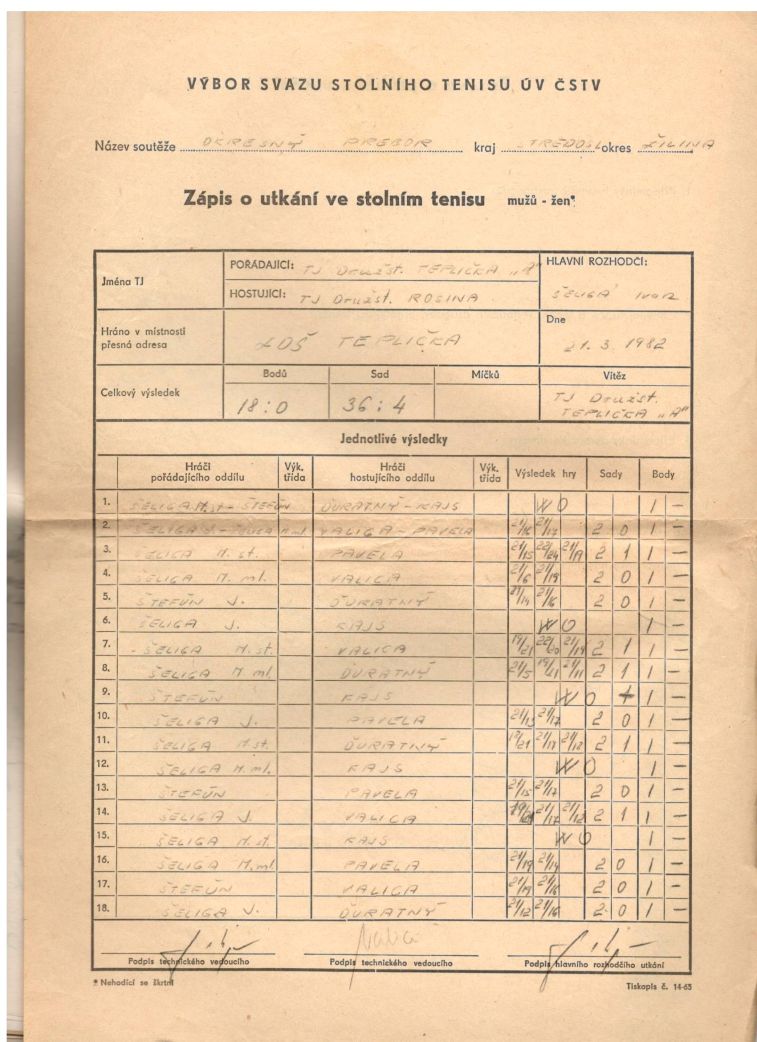 VÝBOR SVAZU STOLNÍHO TENISU ÚV ČSTV
Název soutěže OKRESNÝ PREBOR kraj STREDOSL okres ŽILINA
Zápis o utkání ve stolním tenisu mužů - žen*
Jména TJ
POŘÁDAJÍCÍ: TJ Družst. TEPLIČKA „A"
HLAVNÍ ROZHODČÍ:
HOSTUJÍCÍ: TJ Družst. ROSINA
ŠELIGA IVOR
Hráno v místnosti
přesná adresa
ZDŠ TEPLIČKA
Dne
21. 3. 1982
Celkový výsledek
Bodů Sad Míčků Vítěz
18:0 36:4
TJ Družst.
TEPLIČKA „A"
Jednotlivé výsledky
Hráči
pořádajícího oddílu
Výk.
třída
Hráči
hostujícího oddílu
Výk.
třída
Výsledek hry Sady Body
1. ŠELIGA M.st - ŠTEFÚN ĎURATNÝ - KAJS WO 1 —
2. ŠELIGA J. - M.ml VALIGA - PAVELA 21/16 21/17 2 0 1 —
3. ŠELIGA M. st. PAVELA 21/15 22/24 21/19 2 1 1 —
4. ŠELIGA M. ml. VALIGA 21/6 21/19 2 0 1 —
5. ŠTEFÚN J. ĎURATNÝ 21/14 21/16 2 0 1 —
6. ŠELIGA J. KAJS WO 1 —
7. ŠELIGA M. st. VALIGA 19/21 22/20 21/14 2 1 1 —
8. ŠELIGA M. ml. ĎURATNÝ 21/5 19/21 21/11 2 1 1 —
9. ŠTEFÚN KAJS WO 1 —
10. ŠELIGA J. PAVELA 21/13 21/17 2 0 1 —
11. ŠELIGA M.st. ĎURATNÝ 18/21 21/17 21/12 2 1 1 —
12. ŠELIGA M. ml. KAJS WO 1 —
13. ŠTEFÚN PAVELA 21/15 21/17 2 0 1 —
14. ŠELIGA J. VALIGA 19/21 21/17 21/12 2 1 1 —
15. ŠELIGA M. st. KAJS WO 1 —
16. ŠELIGA M.ml. PAVELA 21/19 21/14 2 0 1 —
17. ŠTEFÚN VALIGA 21/19 21/16 2 0 1 —
18. ŠELIGA J. ĎURATNÝ 21/12 21/16 2 0 1 —
Podpis technického vedoucího Podpis technického vedoucího Podpis hlavního rozhodčího utkání
* Nehodící se škrtni Tiskopis č. 14-65